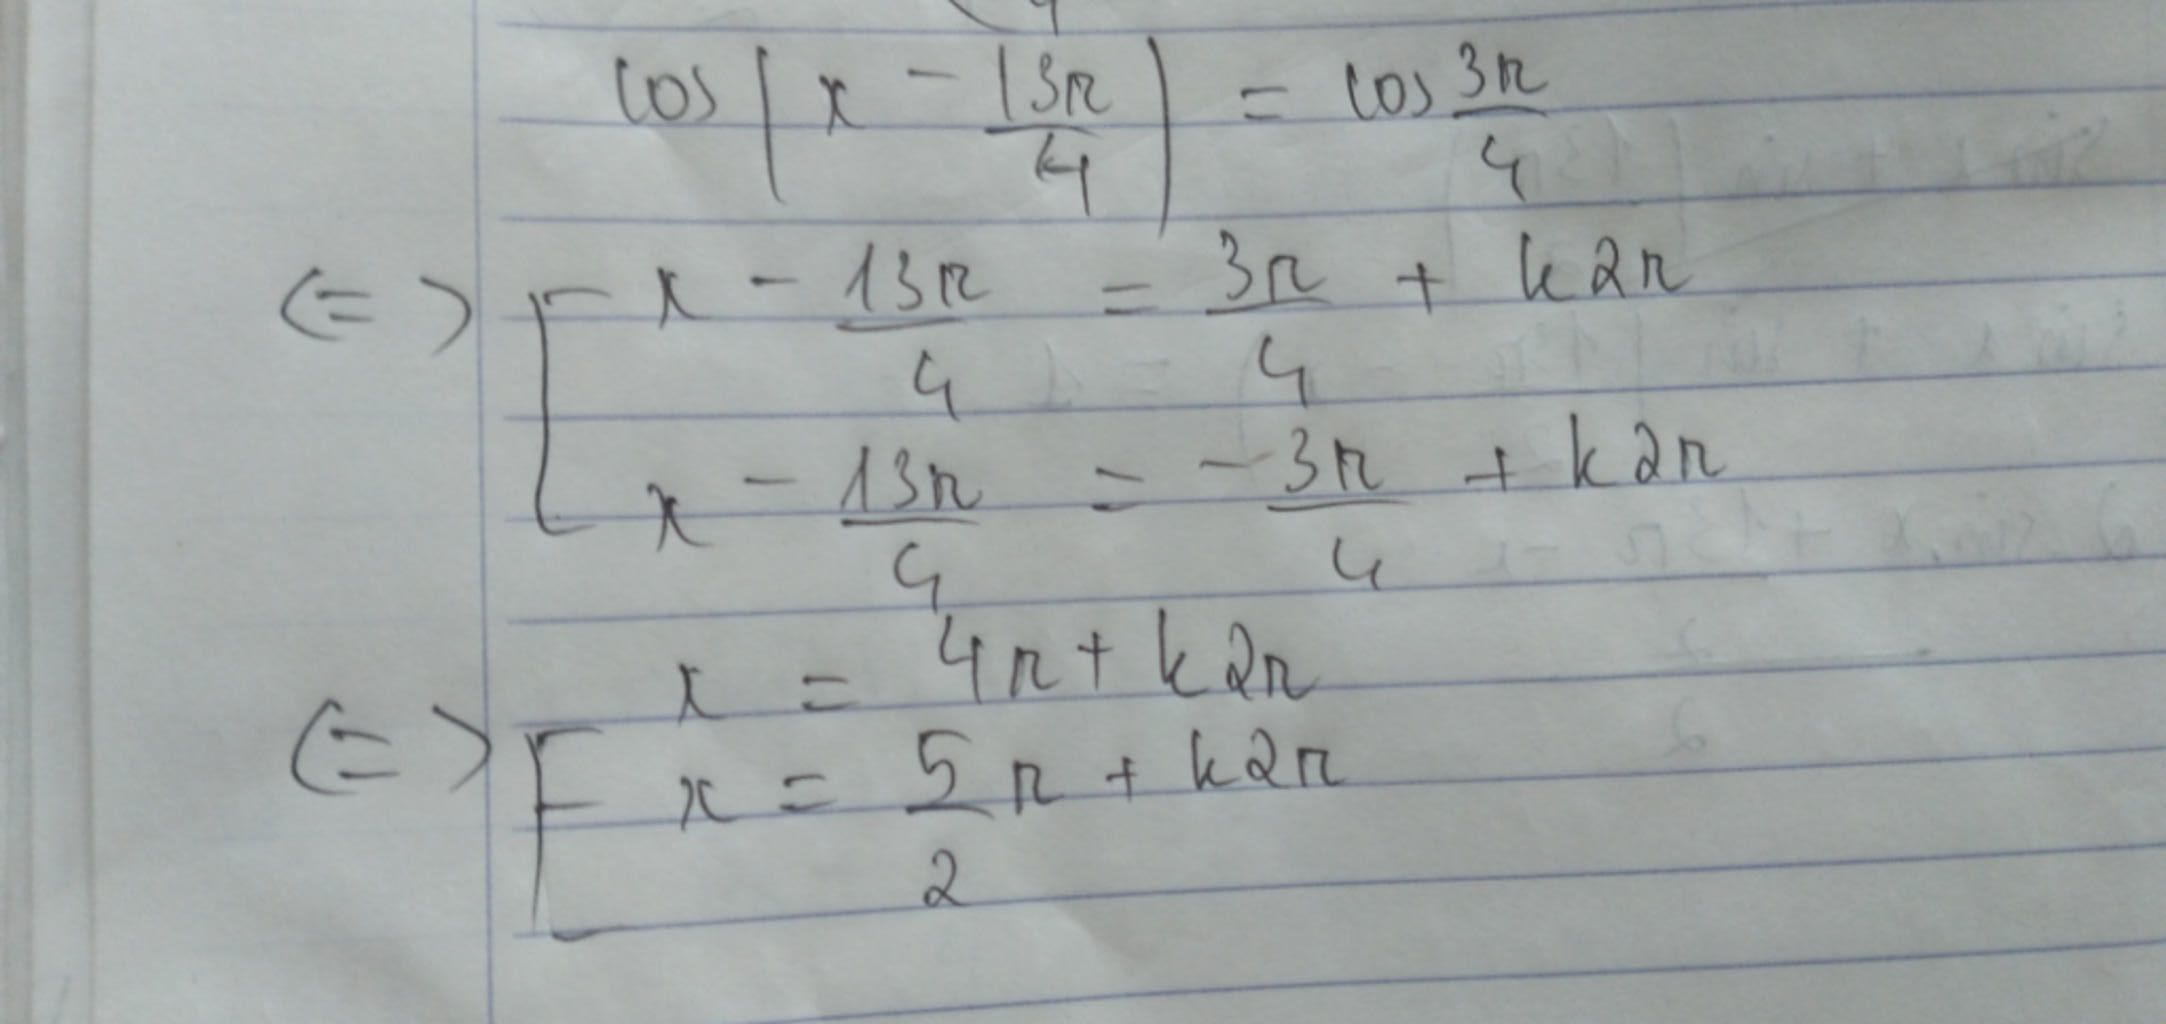 cos(x - 13π/4) = cos 3π/4
<=> [ x - 13π/4 = 3π/4 + k2π
x - 13π/4 = -3π/4 + k2π
x = 4π + k2π
<=> [ x = 5/2 π + k2π